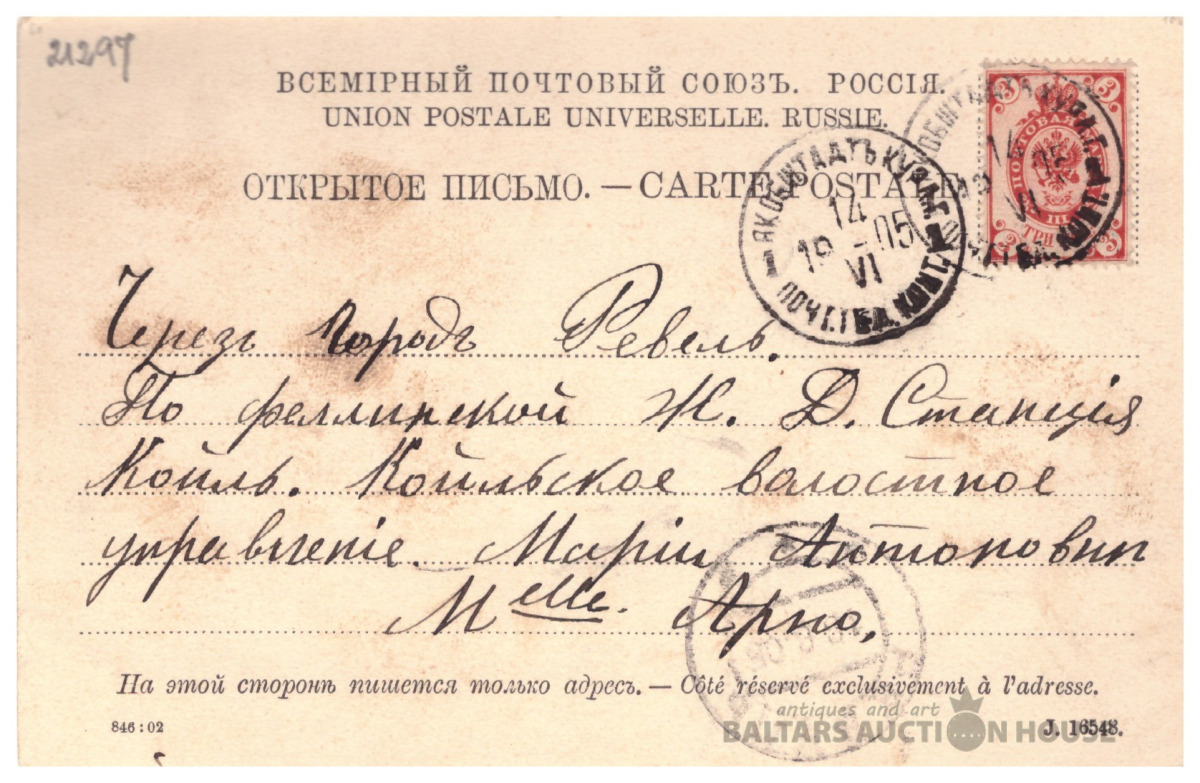 21297
ВСЕМІРНЫЙ ПОЧТОВЫЙ СОЮЗЪ. РОССІЯ.
UNION POSTALE UNIVERSELLE. RUSSIE.
ОТКРЫТОЕ ПИСЬМО. — CARTE POSTALE
3 3
ПОЧТОВАЯ МАРКА
ТРИ
ЯКОБШТАДТЪ КУРЛ. Г.
14
19 05
VI
ПОЧТ. ТЕЛ. КОНТ.
14
19 05
VI
Черезъ городъ Ревель.
По феллинской Ж. Д. Станція
Койль. Койльское волостное
управленіе. Маріи Антоновнп
Melle. Арно,
На этой сторонѣ пишется только адресъ. — Côté réservé exclusivement à l'adresse.
antiques and art
BALTARS AUCTION HOUSE
846 : 02
J. 16548.